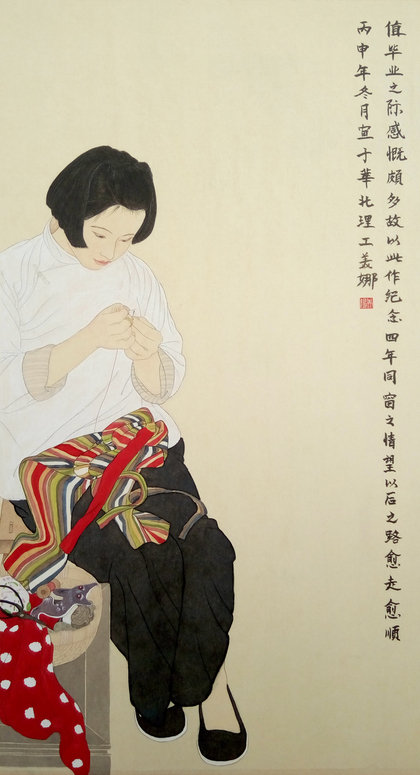 值毕业之际感慨颇多故以此作纪念四年同窗之情望以后之路愈走愈順
丙申年冬月宣于華北理工美娜